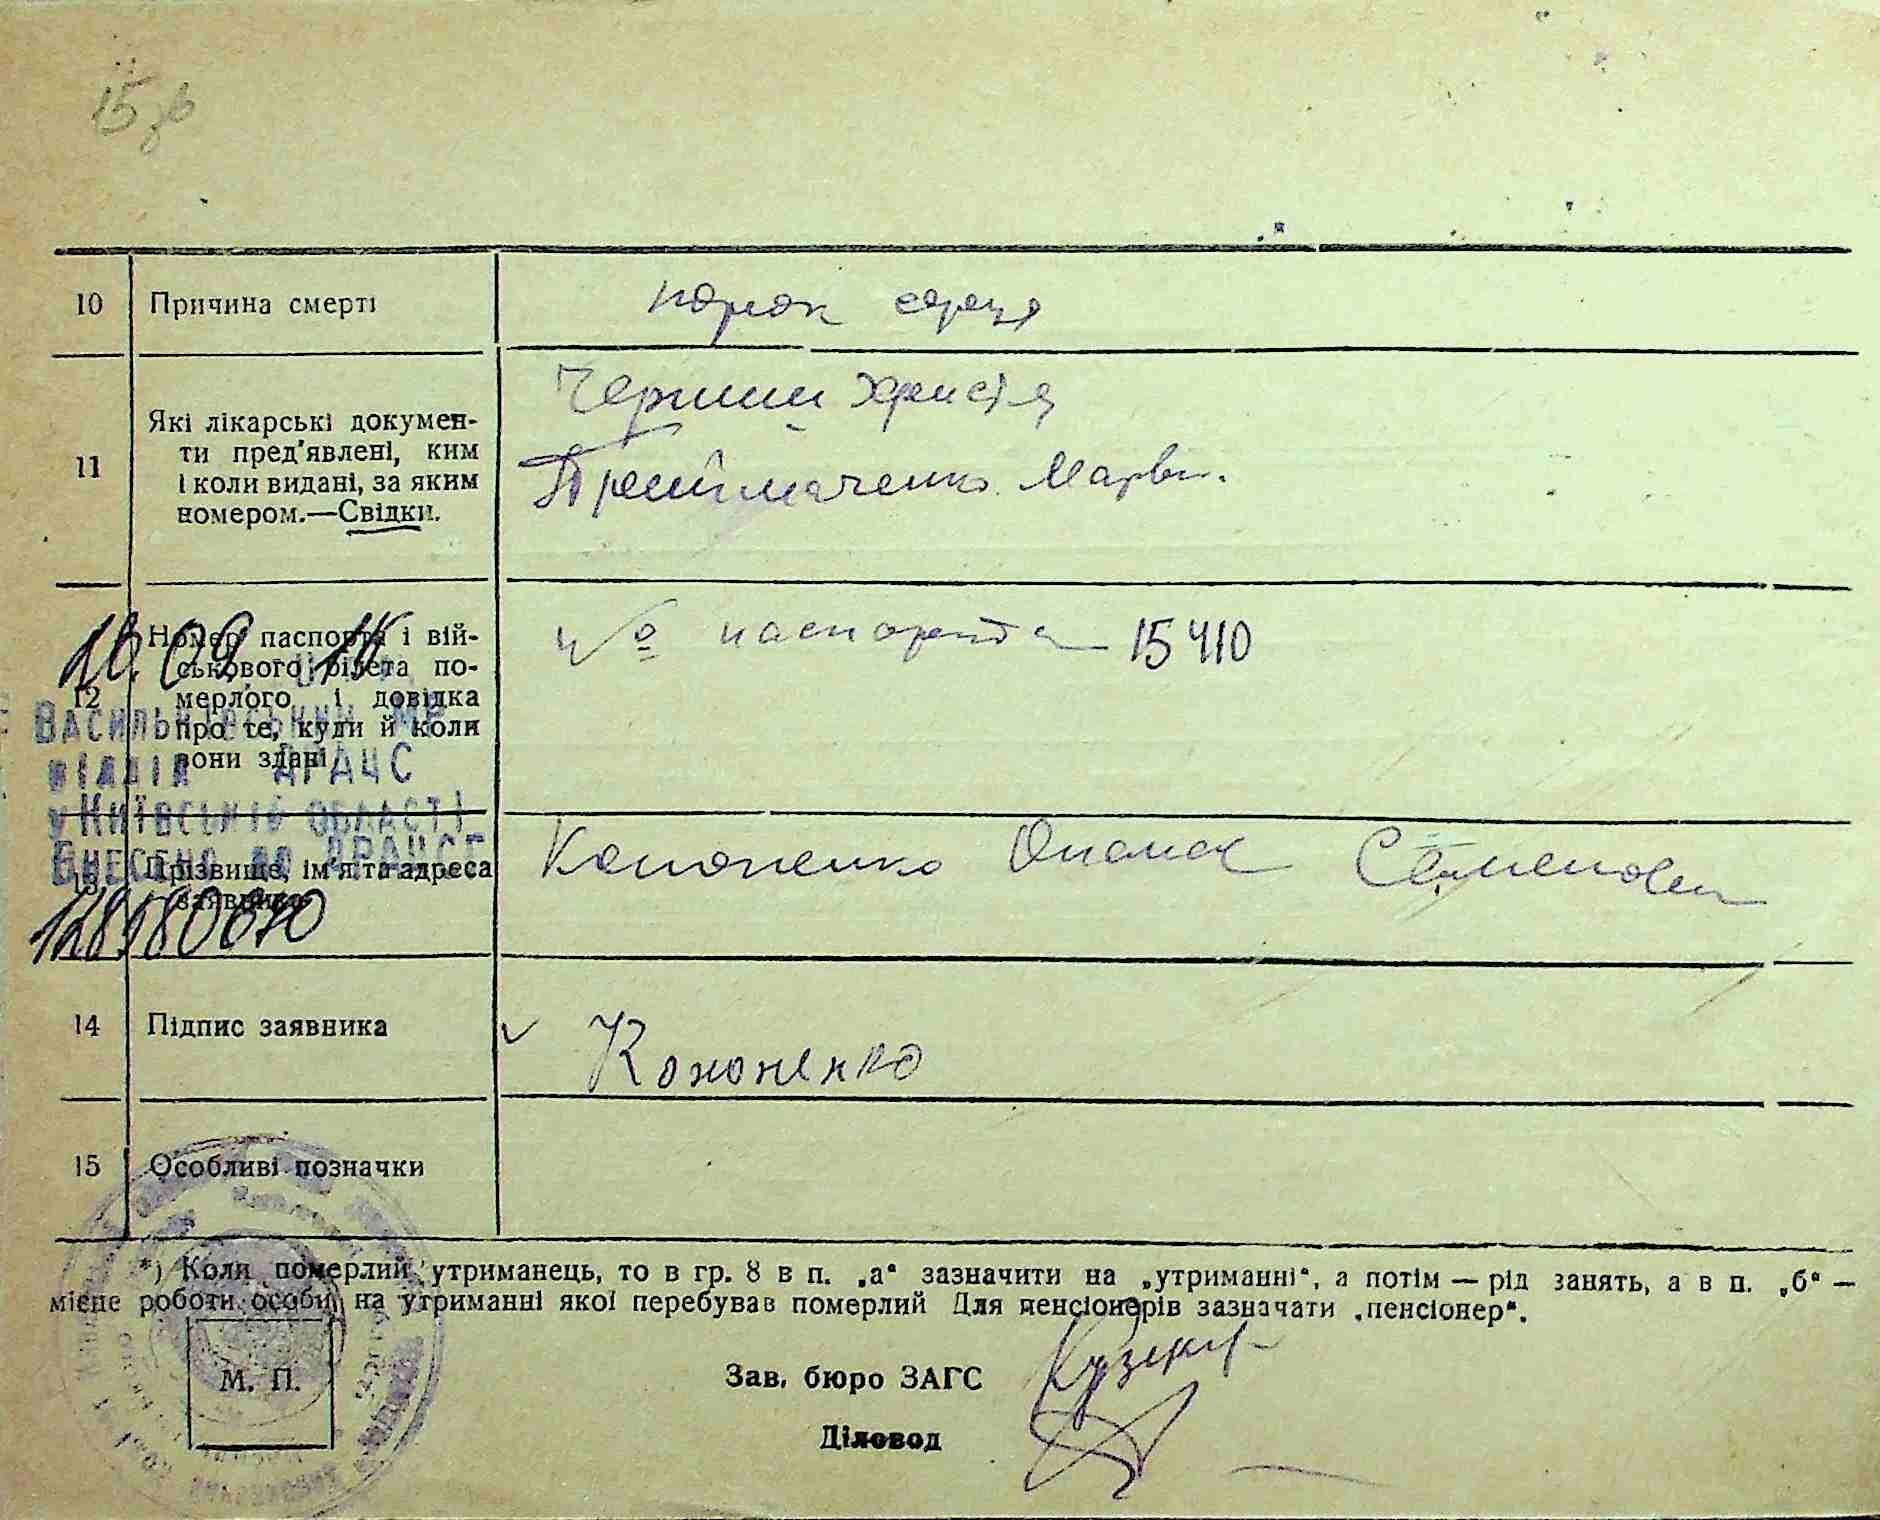 15зв
10 Причина смерті порок серця
11 Які лікарські докумен-
ти пред'явлені, ким
і коли видані, за яким
номером.—Свідки.
Христя
Приймаченко Марва.
12 Номер паспорта і вій-
ськового білета по-
мерлого і довідка
про те, куди й коли
вони здані
№ паспорта 15410
10.09.15
Васильківський МР
відділ ДРАЦС
у Київській області
Внесено до ДРАЦСГ
13 Прізвище, ім'я та адреса
заявника
Кононенко Опанас Семенович
14 Підпис заявника
Кононенко
15 Особливі позначки
*) Коли померлий утриманець, то в гр. 8 в п. „а“ зазначити на „утриманні“, а потім — рід занять, а в п. „б“ —
місце роботи особи, на утриманні якої перебував померлий Для пенсіонерів зазначати „пенсіонер“.
М. П.
Зав. бюро ЗАГС
Діловод